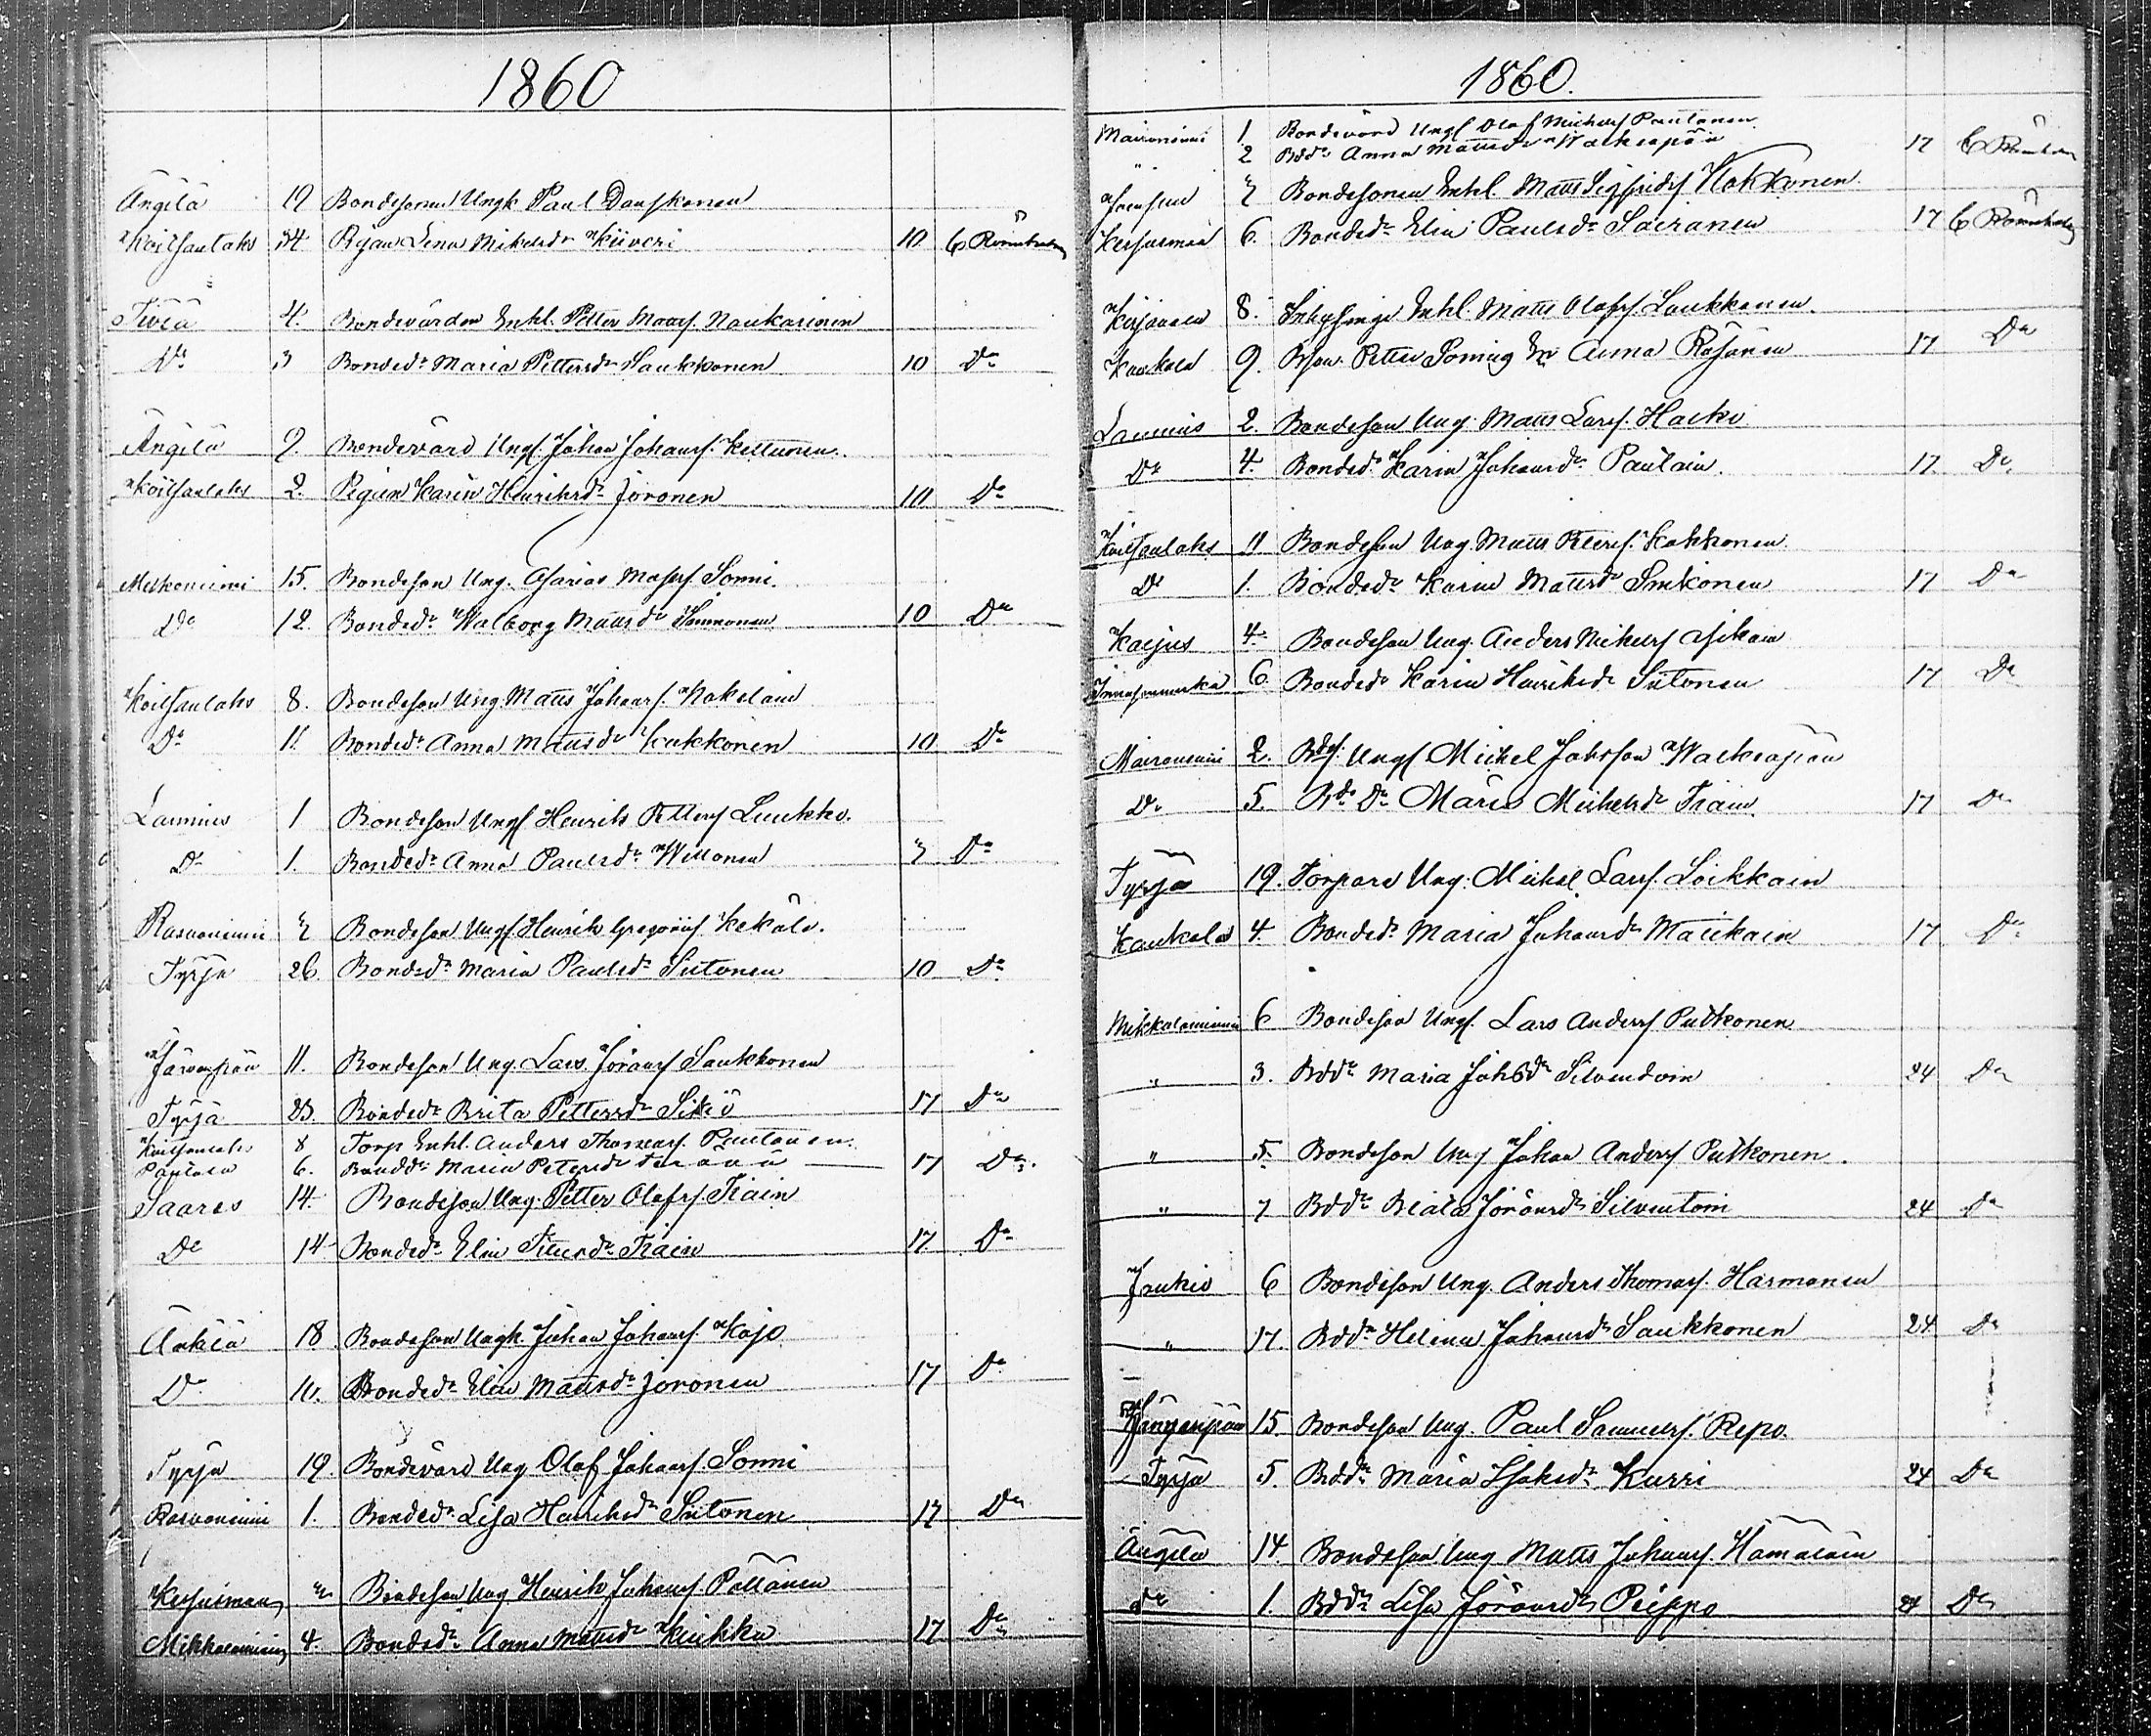 1860
Ängilä 19 Bondesonen Ungk. Paul Danskanen
Koitsanlaks 34 Pigan Lena Mikelsdr Kiiveri 10 C Rönnholm
Tiviä 4. Bondevärden Enkl. Petter Mattss. Naukarinen
Do 3 Bondedr Maria Pettersdr Saukkonen 10 Do
Ängilä 9. Bondevärd Ungk. Johan Johanss. Kettunen.
Koitsanlaks 2. Pigan Karin Henriksdr Joronen 10 Do
Melkoniemi 15. Bondeson Ung. Asarias Matss. Sonni.
Do 12. Bondedr Walborg Mattsdr Simonen 10 Do
Koitsanlaks 8. Bondeson Ung. Matts Johanss. Kokolain
Do 11. Bondedr Anna Mattsdr Kakkonen 10 Do
Laminus 1 Bondeson Ungk Henrik Petterss Luukko.
Do 1. Bondedr Anna Paulsdr Willonen 3 Do
Rasvaniemi 2 Bondeson Ungk Henrik Gregoriis. Kekäle.
Tyrjä 26. Bondedr Maria Paulsdr Siitonen 10 Do
Järvenpää 11. Bondeson Ung. Lars Jöranss Saukkonen
Tyrjä 23. Bondedr Brita Pettersdr Sikiö 17 Do
Koitsanlaks 8 Torp Enkl. Anders Thomass. Pautanen.
6. Bondedr Maria Petersdr 17 Do.
Saares 14. Bondeson Ung. Petter Olofss. Tiain
Do 14 Bondedr Elin Tiain 17. Do
Änkilä 18 Bondeson Ungk. Johan Johanss. Kojo
Do 10. Bondedr Elin Mattsdr Joronen 17 Do
Tyrjä 19. Bondevärd Ung Olof Johanss. Sonni
Rasvaniemi 1. Bondedr Lisa Henriksdr Siitonen 17 Do
Kesusmaa 2 Bondeson Ung Henrik Johanss. Pöllänen
Mikkolaniemi 4. Bondedr Anna Mattsdr Kiukku 17 Do
1860.
Moironiemi 1. Bondevärd Ungk Olof Michelss Pautanen
" 2 Bddr Anna Mattsdr Walkeapää 17 C Rönnholm
7 Bondesonen Enkl. Matts Sigfridss Kokkonen
Kesusmaa 6. Bondedr Elin Paulsdr Saeranen 17 C Rönnholm
8. Enkl. Matts Olofss. Laukkanen.
Kaukola 9. Petter Sonnis Enka Anna Räsänen 17 Do
Laminus 2. Bondeson Ung. Matts Larss. Haeko
Do 4. Bondedr Karin Johansdr Paulain. 17. Do.
Koitsanlaks 11 Bondeson Ung. Matts Peterss. Kokkonen.
Do 1. Bondedr Karin Mattsdr Sinkonen 17 Do
Kaijus 4. Bondeson Ung. Anders Mikelss Asikain
6. Bondedr Karin Henriksdr Siitonen 17 Do
Moironiemi 2. Bds. Ungk Michel Jakobson Walkeapää
Do 5. Bdedr Märis Michelsdr Tiain. 17 Do
Tyrjä 19. Torpare Ung. Mickel Larss. Loikkain
Kaukola 4. Bondedr Maria Johansdr Matikain 17 Do
Mikkolaniemi 6 Bondeson Ungk. Lars Anderss Putkonen
" 3. Bddr Maria Johsdr Silventoin 24 Do
" 5. Bondeson Ung Johan Anderss Putkonen.
" 7 Bddr Beata Jöransdr Silventoin 24 Do
Joukio 6 Bondeson Ung. Anders Thomass. Harmonen
" 17. Bddr Helena Johansdr Saukkonen 24 Do
15. Bondeson Ung. Paul Samuelss. Repo.
Tyrjä 5. Bddr Maria Isaksdr Kurri 24 Do
Ängilä 14. Bondeson Ung Matts Johanss. Hämäläin
Do 1. Bddr Lisa Jöransdr Peippo 24 Do